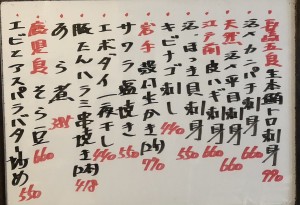 長崎五島 生本鮪トロ刺身 990
活〆カンパチ刺身 660
天然活〆平目刺身 660
江戸前 皮ハギ刺身 660
活ほっき貝刺身 550
キビナゴ刺し 440
岩手 殻付生かき(2ヶ) 770
サワラ塩焼き 550
エボダイ一夜干し 440
豚たんハラミ串焼き(2本) 418
あら煮 385
鹿児島 そら豆 660
エビとアスパラバター炒め 550